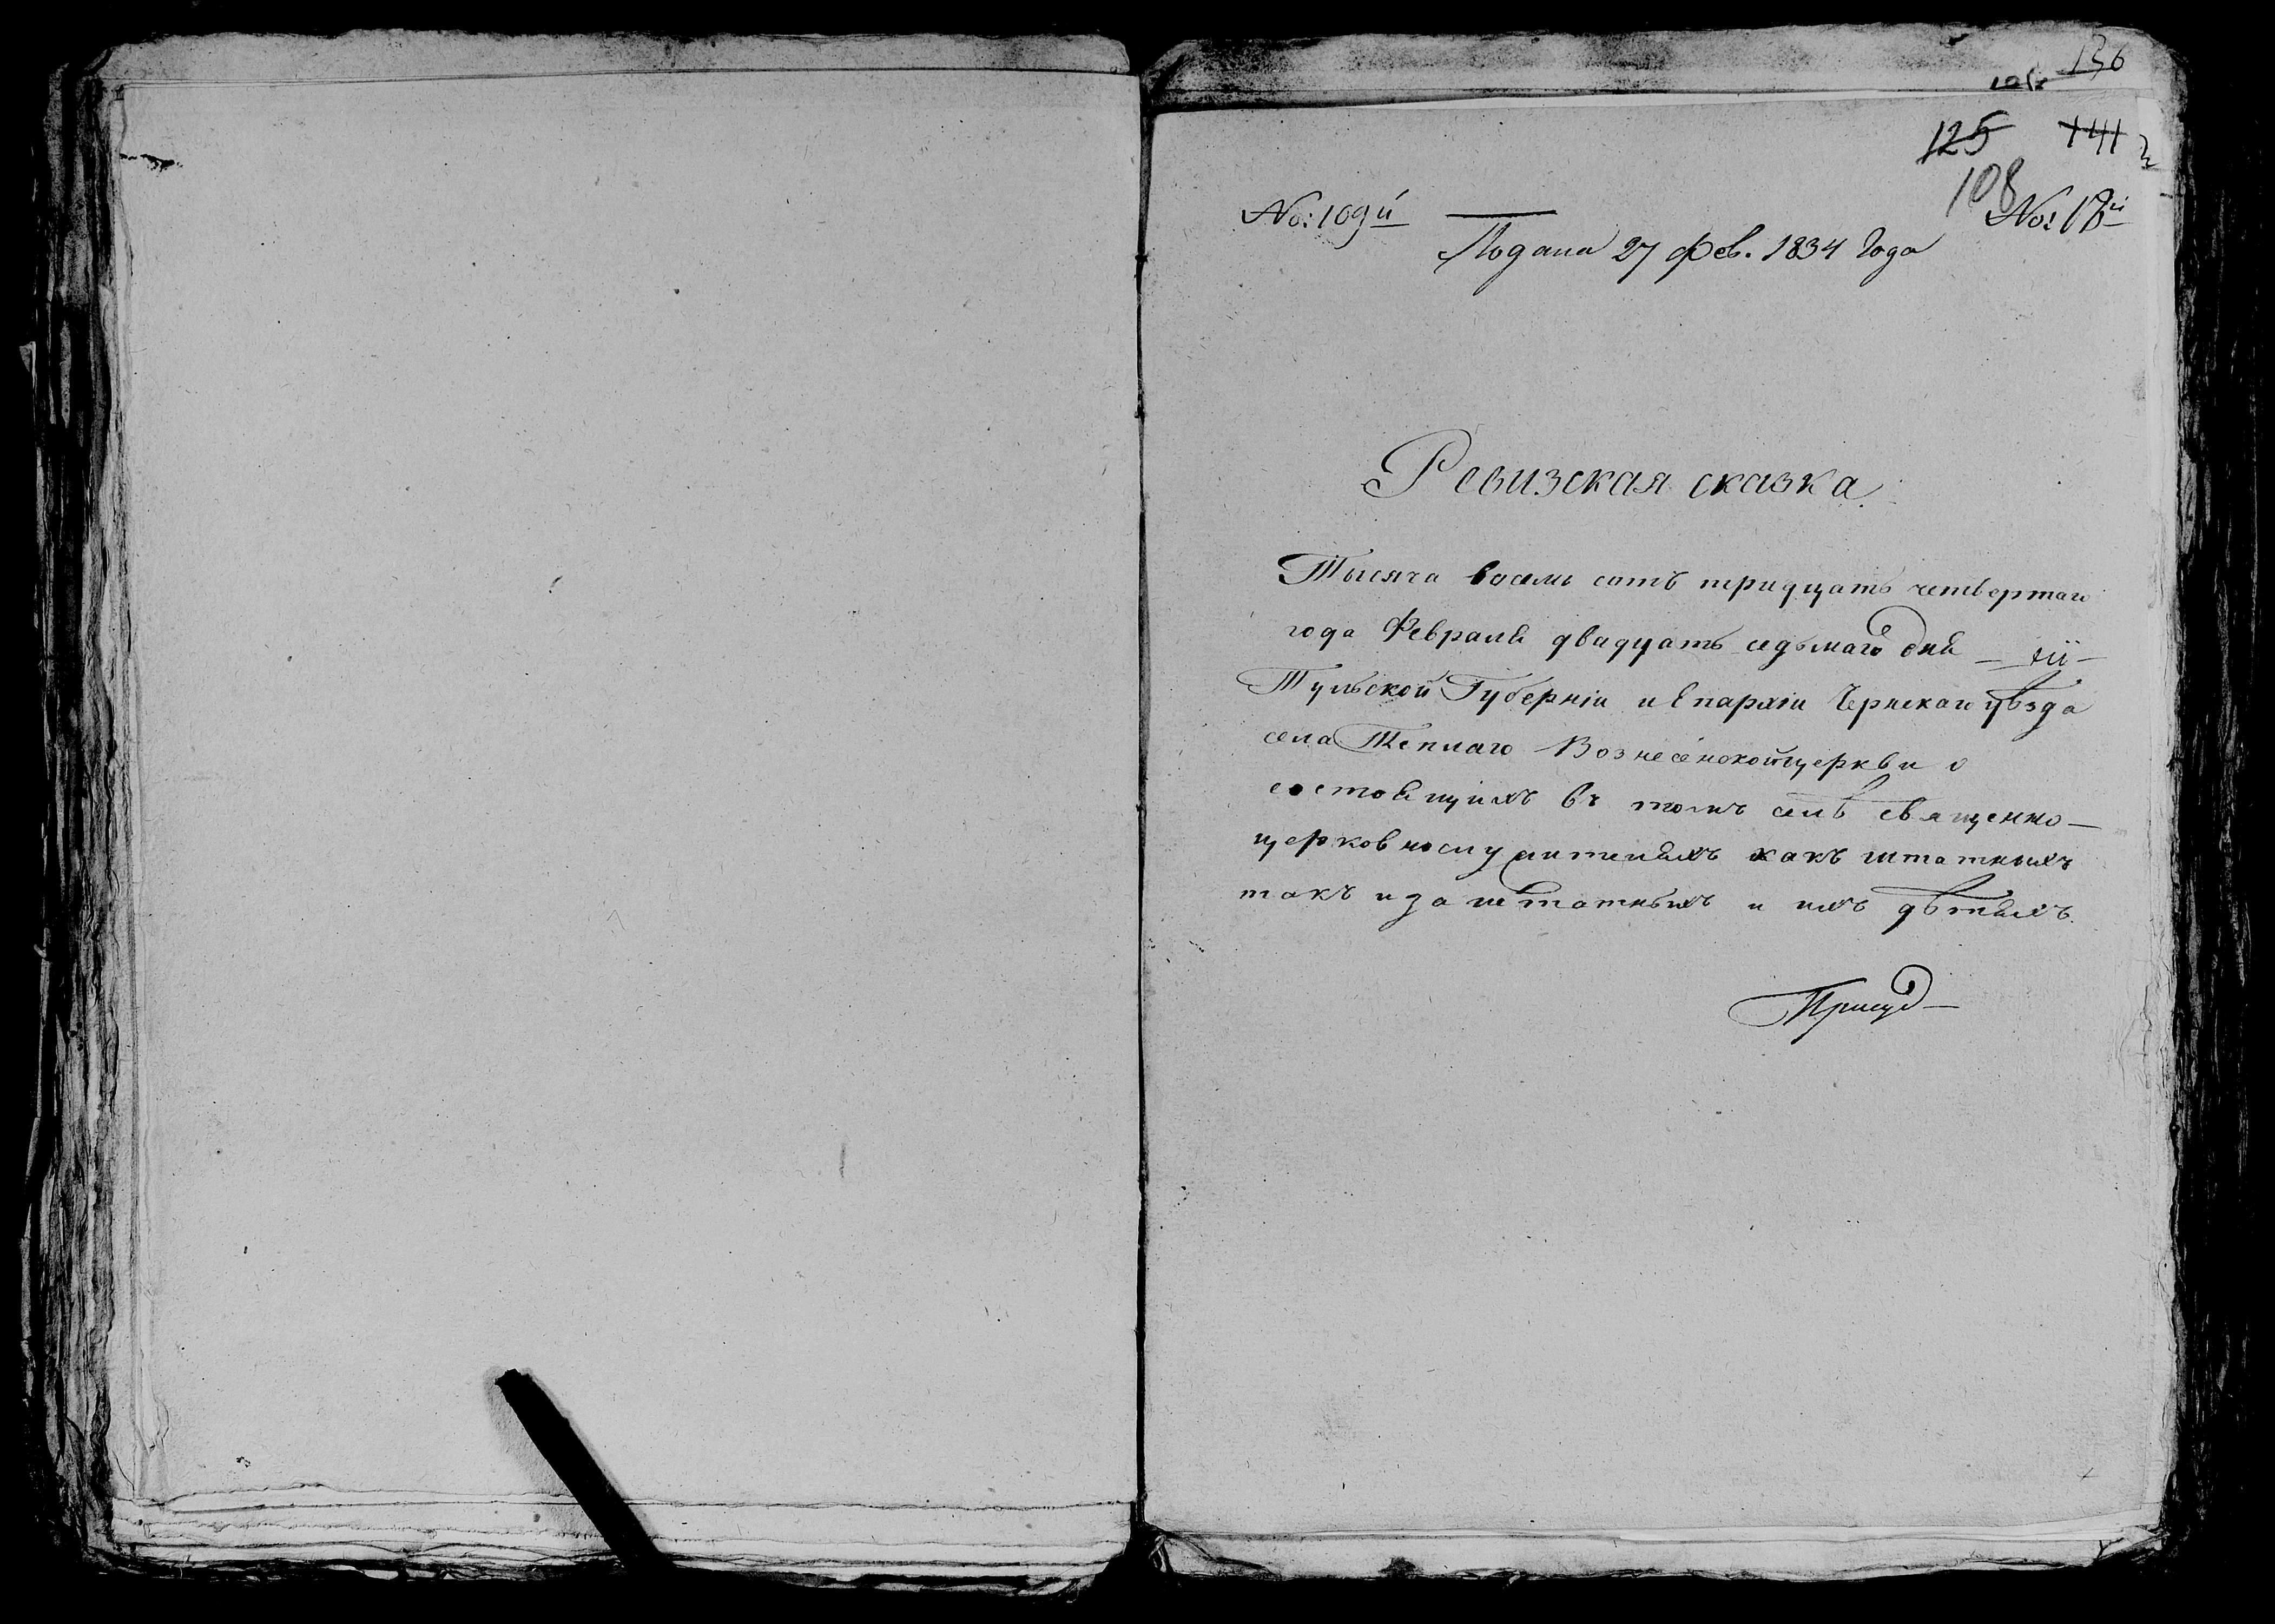 136
125 141
108
No: 109й No: 17й
Подана 27 Фев. 1834 Года
Ревизская сказка
Тысяча восемь сотъ тридцать четвертаго
года Февраля двадцать седьмаго дня
Тульской Губерніи и Епархіи Чернскаго уѣзда
села Теплаго Вознесенской церкви о
состоящихъ въ томъ селѣ священно-
церковнослужителяхъ какъ штатныхъ
такъ и заштатныхъ и ихъ дѣтяхъ.